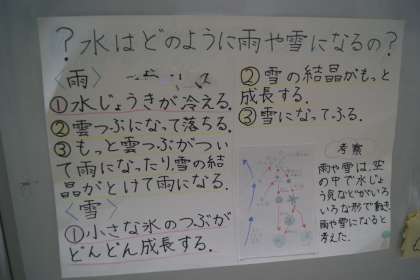 ？水はどのように雨や雪になるの？
〈雨〉
①水じょうきが冷える.
②雲つぶになって落ちる.
③もっと雲つぶがつい
て雨になったり,雪の結
晶がとけて雨になる.
〈雪〉
①小さな氷のつぶが
どんどん成長する.
②雪の結晶がもっと
成長する.
③雪になってふる.
考察
雨や雪は、空
の中で水じょ
う気などがいろ
いろな形で動き
雨や雪になると
考えた.